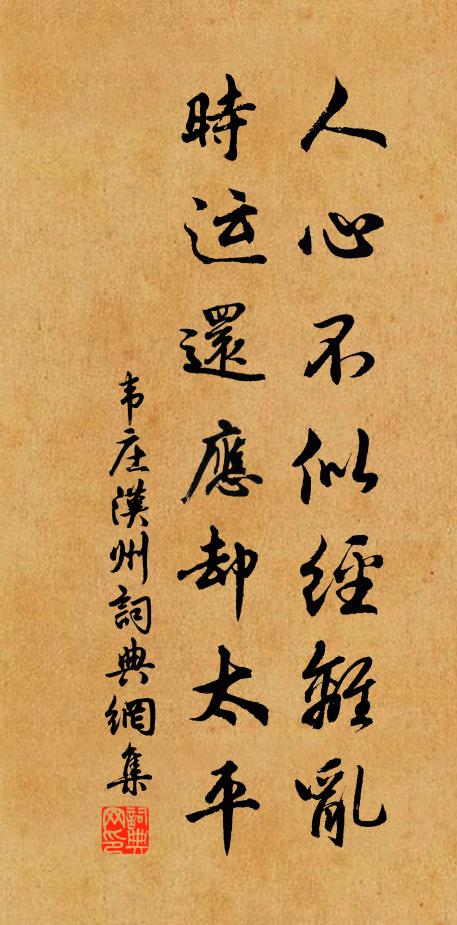 人心不似經離亂
時运還應却太平
韦庄漢州詞典網集
詞典网印